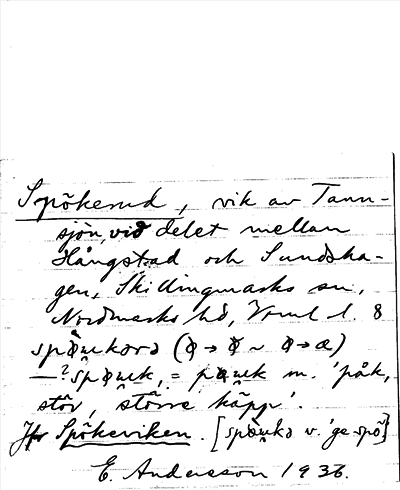 Spökerud, vik av Tann-
sjön, vid delet mellan
Hångstad och Sundsha-
gen, Skillingmarks sn,
Nordmarks hd, Vrml l. 8
(
= m. 'påk,
stör, större käpp'.
Jfr Spökeviken. [ v. 'ge spö']
E. Andersson 1936.